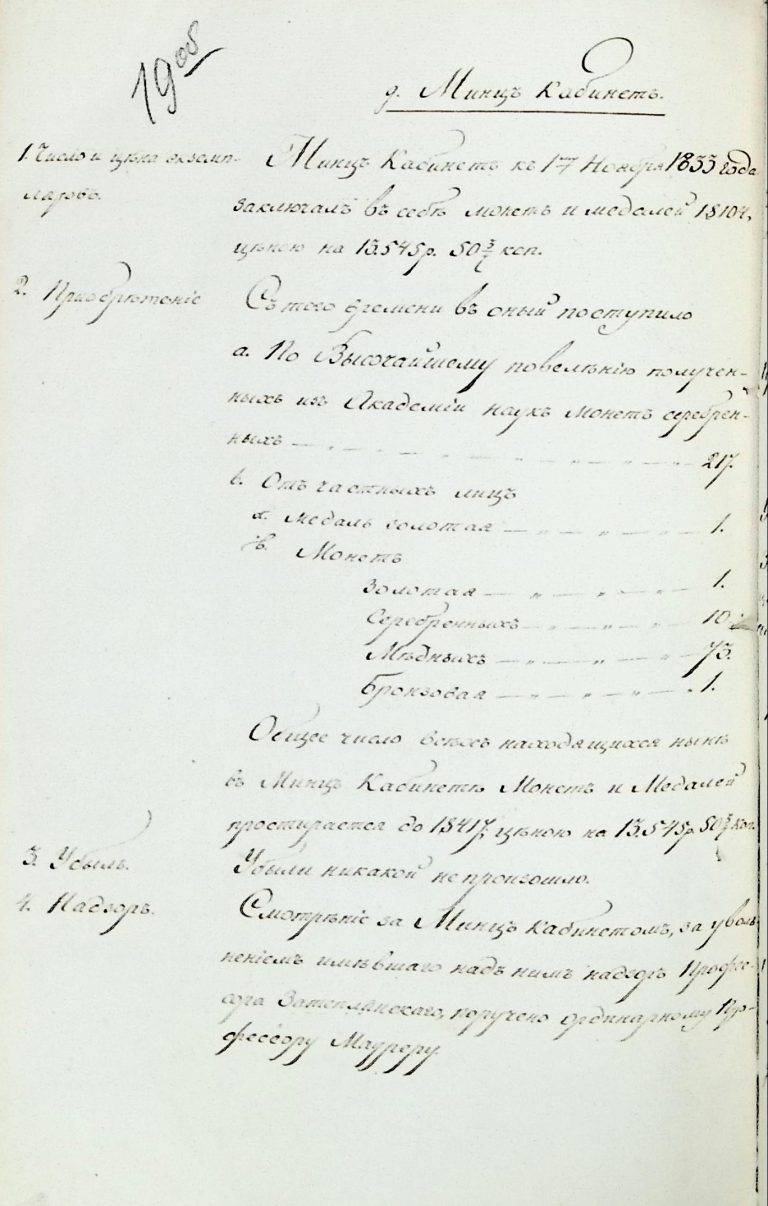 19об
д. Минцъ Кабинетъ.
1. Число и цѣна экземп-
ляровъ.
Минцъ Кабинетъ къ 17 Ноября 1833 года
заключалъ въ себѣ монетъ и медалей 18104,
цѣною на 13.545р. 50 коп.
2. Приобрѣтеніе
Съ того времени въ оный поступило
а. По Высочайшему повелѣнію получен-
ныхъ изъ Академіи наукъ монетъ серебрен-
ныхъ — „ — „ — „ — 217.
b. Отъ частныхъ лицъ
α. медаль золотая — „ — „ — 1.
β. Монетъ
золотая — „ — „ — 1.
Серебренныхъ — „ — „ — 10
Мѣдныхъ — „ — „ — 73.
Бронзовая — „ — „ — 1.
Общее число всѣхъ находящихся нынѣ
въ Минцъ Кабинетѣ Монетъ и Медалей
простирается до 18417, цѣною на 13.545р. 50 коп.
3. Убыль.
Убыли никакой не произошло.
4. Надзоръ.
Смотрѣніе за Минцъ Кабинетомъ, за уволь
неніемъ имѣвшаго надъ нимъ надзоръ Профес-
сора Затеплинскаго, поручено ординарному Про-
фессору Мауреру.